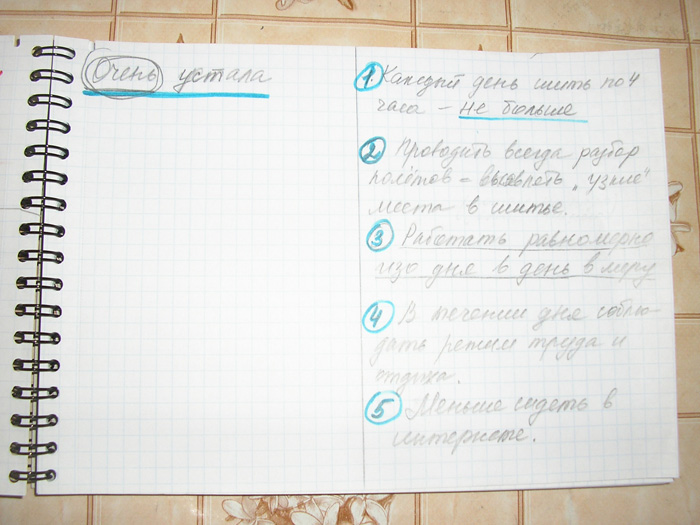 Очень устала
1. Каждый день шить по 4
часа - не больше
2 Проводить всегда разбор
полётов = выявлять „узкие"
места в шитье.
3 Работать равномерно
изо дня в день в меру
4 В течении дня соблю-
дать режим труда и
отдыха.
5 Меньше сидеть в
интернете.